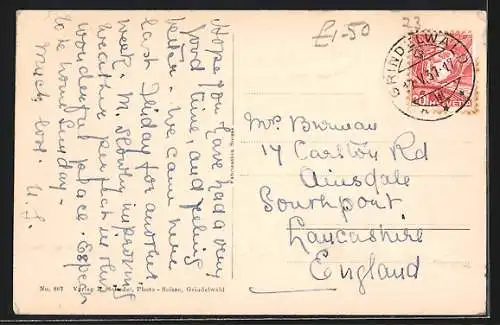 £1-50
23
GRINDELWALD
Hope you have had a very
good time, and feeling
better. We came here
last Friday for another
week. M. Slowly improving
weather perfect in this
wonderful place. Expect
to be home Sunday.
Much love.
Mrs Burman
17 Carlton Rd
Ainsdale
Southport
Lancashire
England
No. 607 Verlag Photo-Suisse, Grindelwald